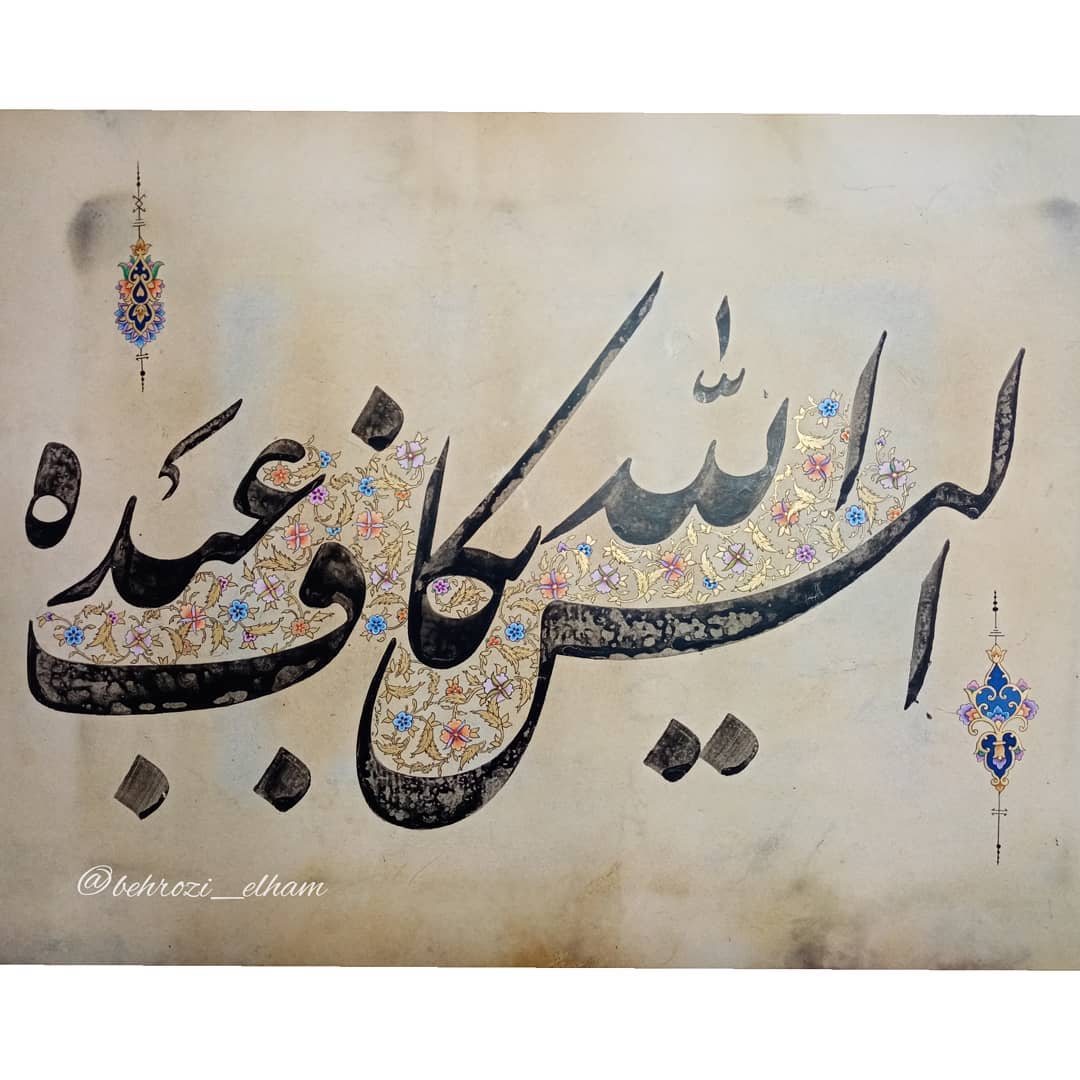 الیس الله بکاف عبده
@behrozi__elham